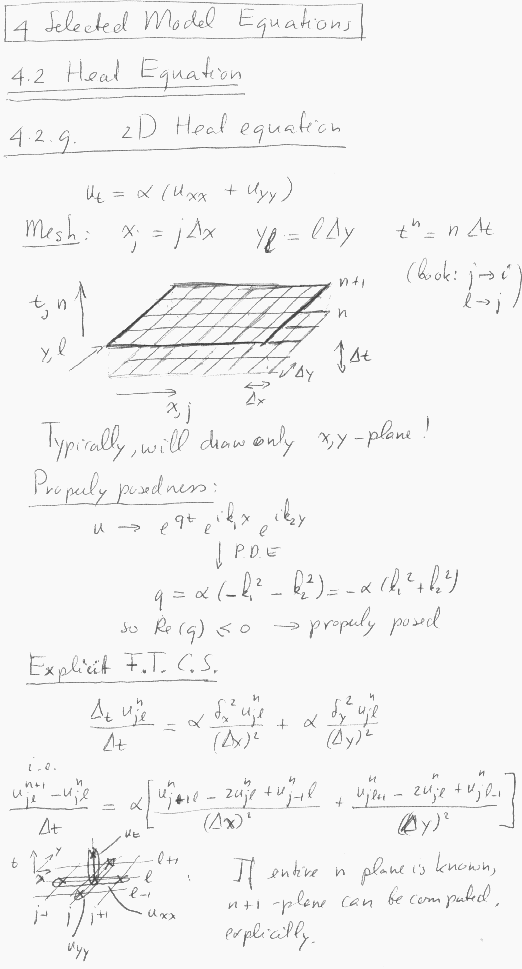 4 Selected Model Equations
4.2 Heat Equation
4.2.g. 2D Heat equation
u_t = α (u_xx + u_yy)
Mesh: x_j = jΔx y_l = lΔy t^n = n Δt
(book: j→i
l→j)
n+1
t, n
n
y, l
Δt
Δy
x, j
Δx
Typically, will draw only x,y-plane!
Properly posedness:
u → e^{qt} e^{ik_1x} e^{ik_2y}
↓ P.D.E
q = α(-k_1^2 - k_2^2) = -α(k_1^2 + k_2^2)
so Re(q) ≤ 0 → properly posed
Explicit F.T.C.S.
Δ_t u_{jl}^n / Δt = α δ_x^2 u_{jl}^n / (Δx)^2 + α δ_y^2 u_{jl}^n / (Δy)^2
i.e.
(u_{jl}^{n+1} - u_{jl}^n) / Δt = α [ (u_{j+1l}^n - 2u_{jl}^n + u_{j-1l}^n) / (Δx)^2 + (u_{jl+1}^n - 2u_{jl}^n + u_{jl-1}^n) / (Δy)^2 ]
u_t
t y
x
l+1
l
l-1
j-1 j j+1
u_xx
u_yy
If entire n plane is known,
n+1-plane can be computed,
explicitly.